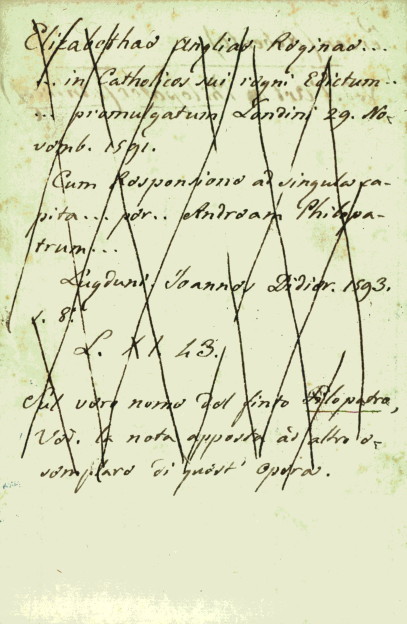 Elizabethae Angliae Reginae...
... in Catholicos sui regni Edictum...
... promulgatum Londini 29. No=
vemb. 1591.
Cum Responsione ad singula ca-
pita... per.. Andream Philopa-
trum...
Lugduni. Joannes Didier. 1593.
8.°
L. XI. 43.
Sul vero nome del finto Filopadro,
Ved. la nota apposta ad altro e=
semplare di quest' Opera.